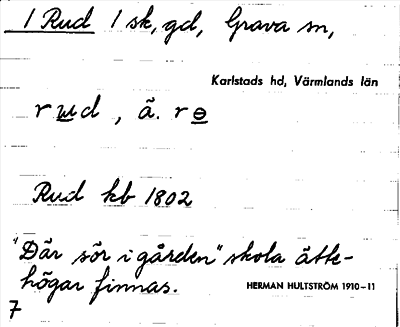 1 Rud 1 sk, gd, Grava sn,
Karlstads hd, Värmlands län
r u̲d , ä. r ɵ̲
Rud kb 1802
"Där sör i gården" skola ätte-
högar finnas.
HERMAN HULTSTRÖM 1910-11
7